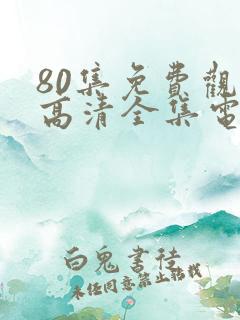 80集免費觀
高清全集電
白鬼書徍
未經同意禁止轉載